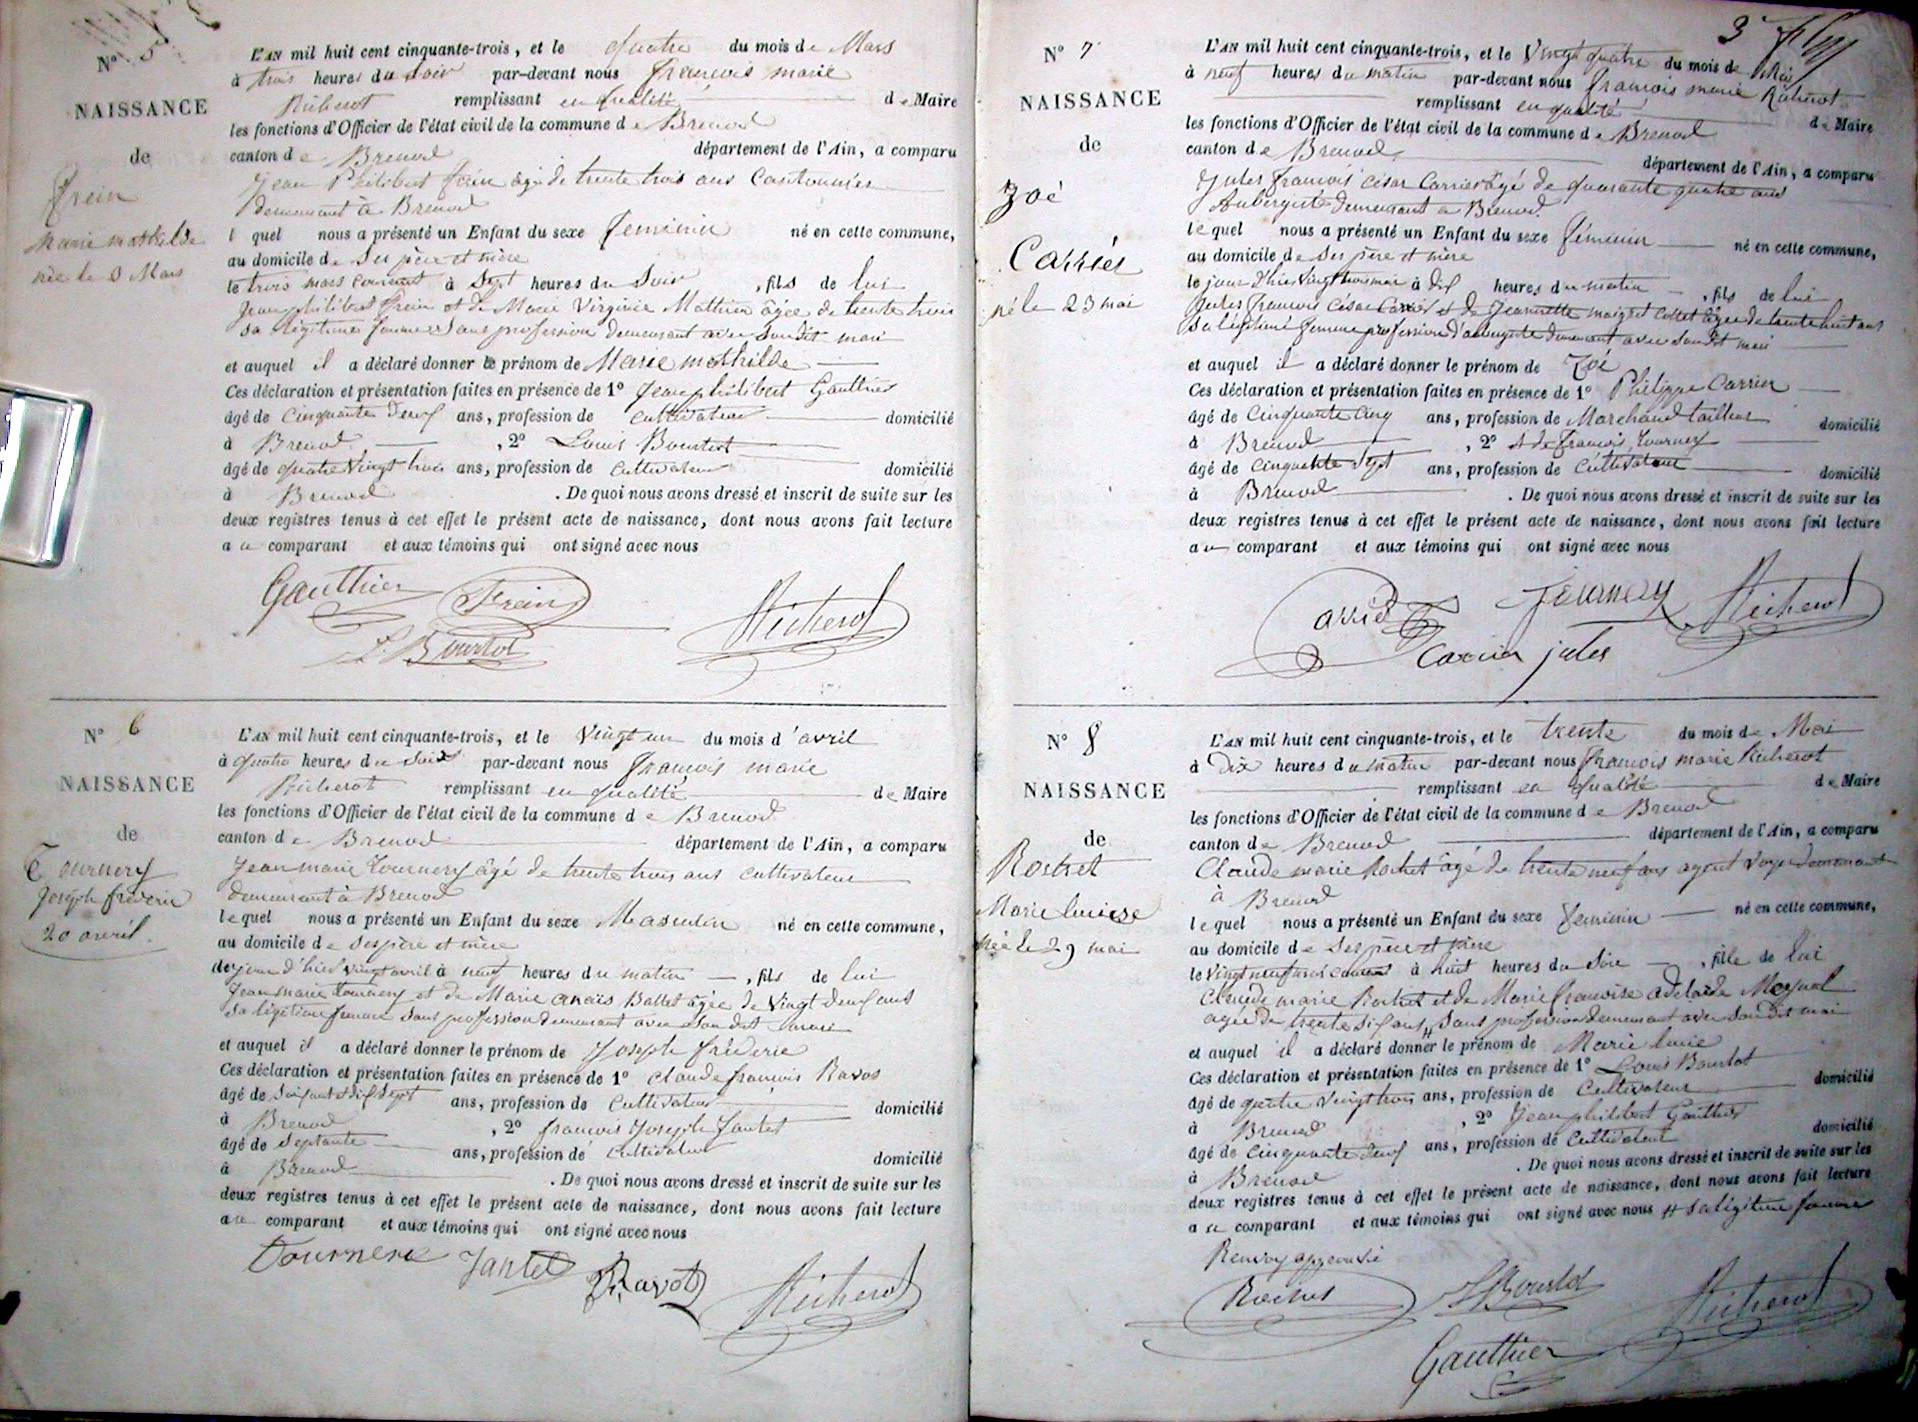 N° 5
NAISSANCE
de
Frein
Marie mathilde
née le 3 Mars
L'AN mil huit cent cinquante-trois, et le quatre du mois de Mars
à trois heures du soir par-devant nous françois marie
Richerot remplissant en qualité de Maire
les fonctions d'Officier de l'état civil de la commune de Brenod
canton de Brenod département de l'Ain, a comparu
Jean Philibert frein âgé de trente trois ans Cantonnier
demeurant à Brenod
l quel nous a présenté un Enfant du sexe feminin né en cette commune,
au domicile de ses père et mère
le trois mars courant à Sept heures du Soir , fils de lui
Jean philibert frein et de Marie Virginie Mathieu âgée de trente trois
sa légitime femme sans profession demeurant avec son dit mari
et auquel il a déclaré donner le prénom de Marie mathilde
Ces déclaration et présentation faites en présence de 1° Jean philibert Gauthier
âgé de Cinquante deux ans, profession de cultivateur domicilié
à Brenod , 2° Louis Bourtot
âgé de quatre vingt trois ans, profession de Cultivateur domicilié
à Brenod . De quoi nous avons dressé et inscrit de suite sur les
deux registres tenus à cet effet le présent acte de naissance, dont nous avons fait lecture
au comparant et aux témoins qui ont signé avec nous
Gauthier Frein
L. Bourtot Richerot
N° 6
NAISSANCE
de
Tournery
Joseph fréderic
20 avril.
L'AN mil huit cent cinquante-trois, et le Vingt un du mois d'avril
à quatre heures du Soir par-devant nous françois marie
Richerot remplissant en qualité de Maire
les fonctions d'Officier de l'état civil de la commune de Brenod
canton de Brenod département de l'Ain, a comparu
Jean marie Tournery âgé de trente trois ans cultivateur
demeurant à Brenod
lequel nous a présenté un Enfant du sexe Masculin né en cette commune,
au domicile de ses père et mère
le jour d'hier vingt avril à neuf heures du matin , fils de lui
Jean marie Tournery et de Marie anaïs Ballet âgée de Vingt deux ans
sa légitime femme sans profession demeurant avec son dit mari
et auquel il a déclaré donner le prénom de Joseph fréderic
Ces déclaration et présentation faites en présence de 1° Claude françois Ravos
âgé de Soixante dix Sept ans, profession de Cultivateur domicilié
à Brenod , 2° françois Joseph Jantet
âgé de Septante ans, profession de Cultivateur domicilié
à Brenod . De quoi nous avons dressé et inscrit de suite sur les
deux registres tenus à cet effet le présent acte de naissance, dont nous avons fait lecture
au comparant et aux témoins qui ont signé avec nous
Jantet Ravot Richerot
3
N° 7
NAISSANCE
de
Zoé
Carrier
né le 23 mai
L'AN mil huit cent cinquante-trois, et le Vingt quatre du mois de Mai
à neuf heures du matin par-devant nous françois marie Richerot
remplissant en qualité de Maire
les fonctions d'Officier de l'état civil de la commune de Brenod
canton de Brenod département de l'Ain, a comparu
Jules françois César Carrier âgé de quarante quatre ans
Aubergiste demeurant à Brenod
lequel nous a présenté un Enfant du sexe féminin né en cette commune,
au domicile de ses père et mère
le jour d'hier vingt trois mai à dix heures du matin , fils de lui
Jules françois César Carrier et de Jeannette maigret Collet âgée de trente huit ans
sa légitime femme profession d'aubergiste demeurant avec son dit mari
et auquel il a déclaré donner le prénom de Zoé
Ces déclaration et présentation faites en présence de 1° Philippe Carrier
âgé de Cinquante Cinq ans, profession de Marchand tailleur domicilié
à Brenod , 2° et de françois tournery
âgé de Cinquante Sept ans, profession de Cultivateur domicilié
à Brenod . De quoi nous avons dressé et inscrit de suite sur les
deux registres tenus à cet effet le présent acte de naissance, dont nous avons fait lecture
au comparant et aux témoins qui ont signé avec nous
Richerot
Carrier jules
N° 8
NAISSANCE
de
Rochet
Marie lucie
née le 29 mai
L'AN mil huit cent cinquante-trois, et le trente du mois de Mai
à Dix heures du matin par-devant nous françois marie Richerot
remplissant en qualité de Maire
les fonctions d'Officier de l'état civil de la commune de Brenod
canton de Brenod département de l'Ain, a comparu
Claude marie Rochet âgé de trente neuf ans agent voyer demeurant
à Brenod
lequel nous a présenté un Enfant du sexe feminin né en cette commune,
au domicile de ses père et mère
le vingt neuf mai courant à huit heures du Soir , fille de lui
Claude marie Rochet et de Marie françoise adelaïde Moynal
agée de trente Six ans # sans profession demeurant avec son dit mari
et auquel il a déclaré donner le prénom de Marie lucie
Ces déclaration et présentation faites en présence de 1° Louis Bourtot
âgé de quatre vingt trois ans, profession de Cultivateur domicilié
à Brenod , 2° Jean philibert Gauthier
âgé de Cinquante deux ans, profession de Cultivateur domicilié
à Brenod . De quoi nous avons dressé et inscrit de suite sur les
deux registres tenus à cet effet le présent acte de naissance, dont nous avons fait lecture
au comparant et aux témoins qui ont signé avec nous # sa légitime femme
Renvoy approuvé
Rochet L Bourtot Richerot
Gauthier